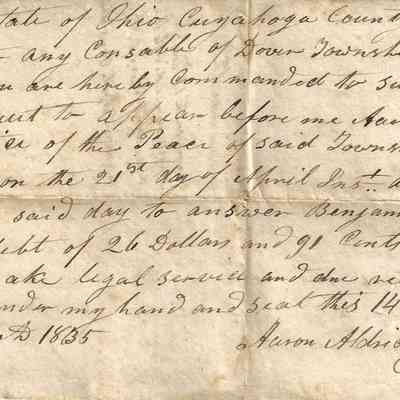 tate of Ohio Cuyahoga Count
any Consable of Dover Townsh
u are hereby Commanded to su
to appear before me Aar
of the Peace of said Towns
on the 21st day of April Inst. a
said day to answer Benjam
ebt of 26 Dollars and 91 Cents
ake legal service and due re
nder my hand and seal this 14
AD 1835 Aaron Aldri